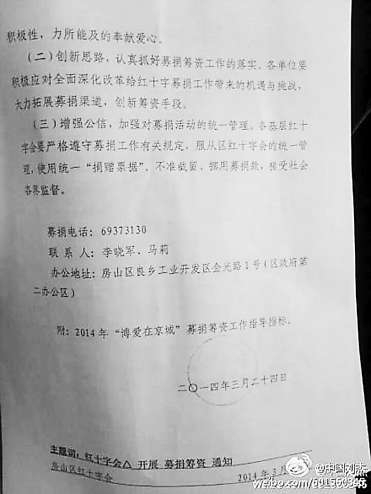 积极性，力所能及的奉献爱心。
（二）创新思路，认真抓好募捐筹资工作的落实。各单位要
积极应对全面深化改革给红十字募捐工作带来的机遇与挑战，
大力拓展募捐渠道，创新筹资手段。
（三）增强公信，加强对募捐活动的统一管理。各基层红十
字会要严格遵守募捐工作有关规定，服从区红十字会的统一管
理，使用统一“捐赠票据”，不准截留、挪用募捐款，接受社会
各界监督。
募捐电话：69373130
联 系 人：李晓军、马莉
办公地址：房山区良乡工业开发区金光路1号（区政府第
二办公区）
附：2014年“博爱在京城”募捐筹资工作指导指标。
二〇一四年三月二十四日
主题词：红十字会△ 开展 募捐筹资 通知
房山区红十字会 2014年3月
@中国刘杰
weibo.com/